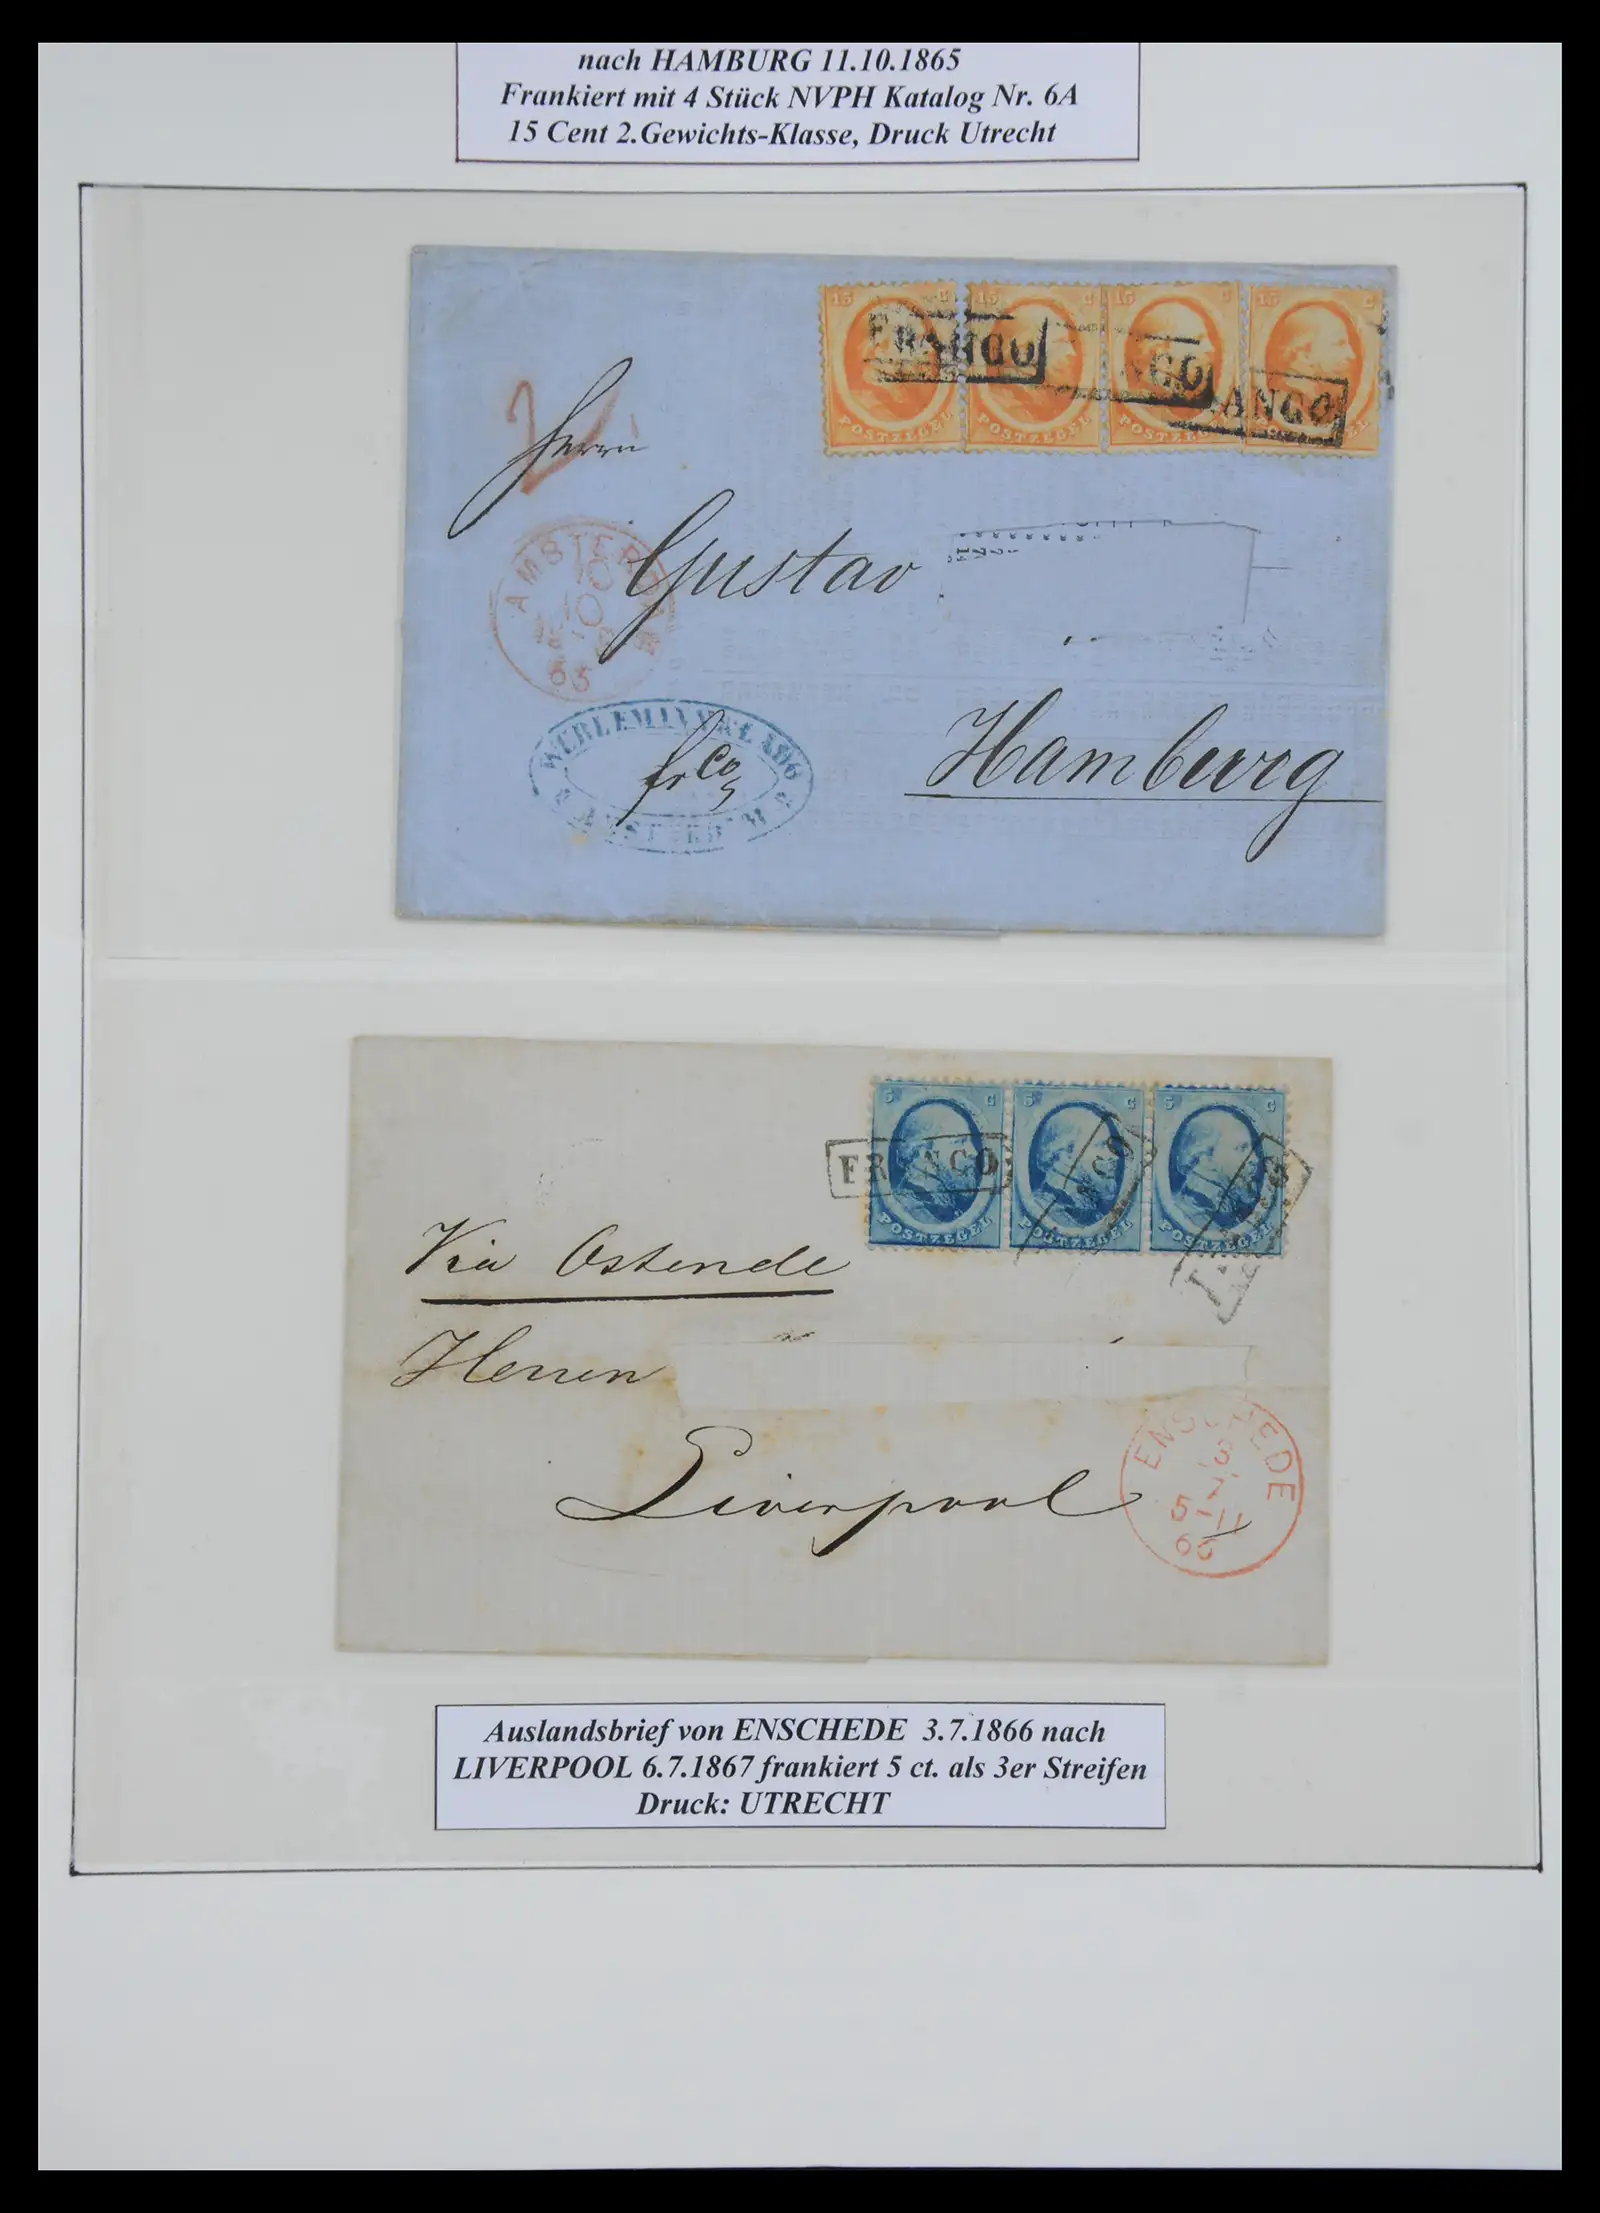 nach HAMBURG 11.10.1865
Frankiert mit 4 Stück NVPH Katalog Nr. 6A
15 Cent 2.Gewichts-Klasse, Druck Utrecht
15 C 15 C 15 C 15 C
FRANCO FRANCO
POSTZEGEL POSTZEGEL POSTZEGEL POSTZEGEL
Herrn
Gustav
AMSTERDAM
10
65
frco
Hamburg
5 C 5 C 5 C
FRANCO
POSTZEGEL POSTZEGEL POSTZEGEL
Via Ostende
Herren
Liverpool
ENSCHEDE
3
7
5 - 11
66
Auslandsbrief von ENSCHEDE 3.7.1866 nach
LIVERPOOL 6.7.1867 frankiert 5 ct. als 3er Streifen
Druck: UTRECHT